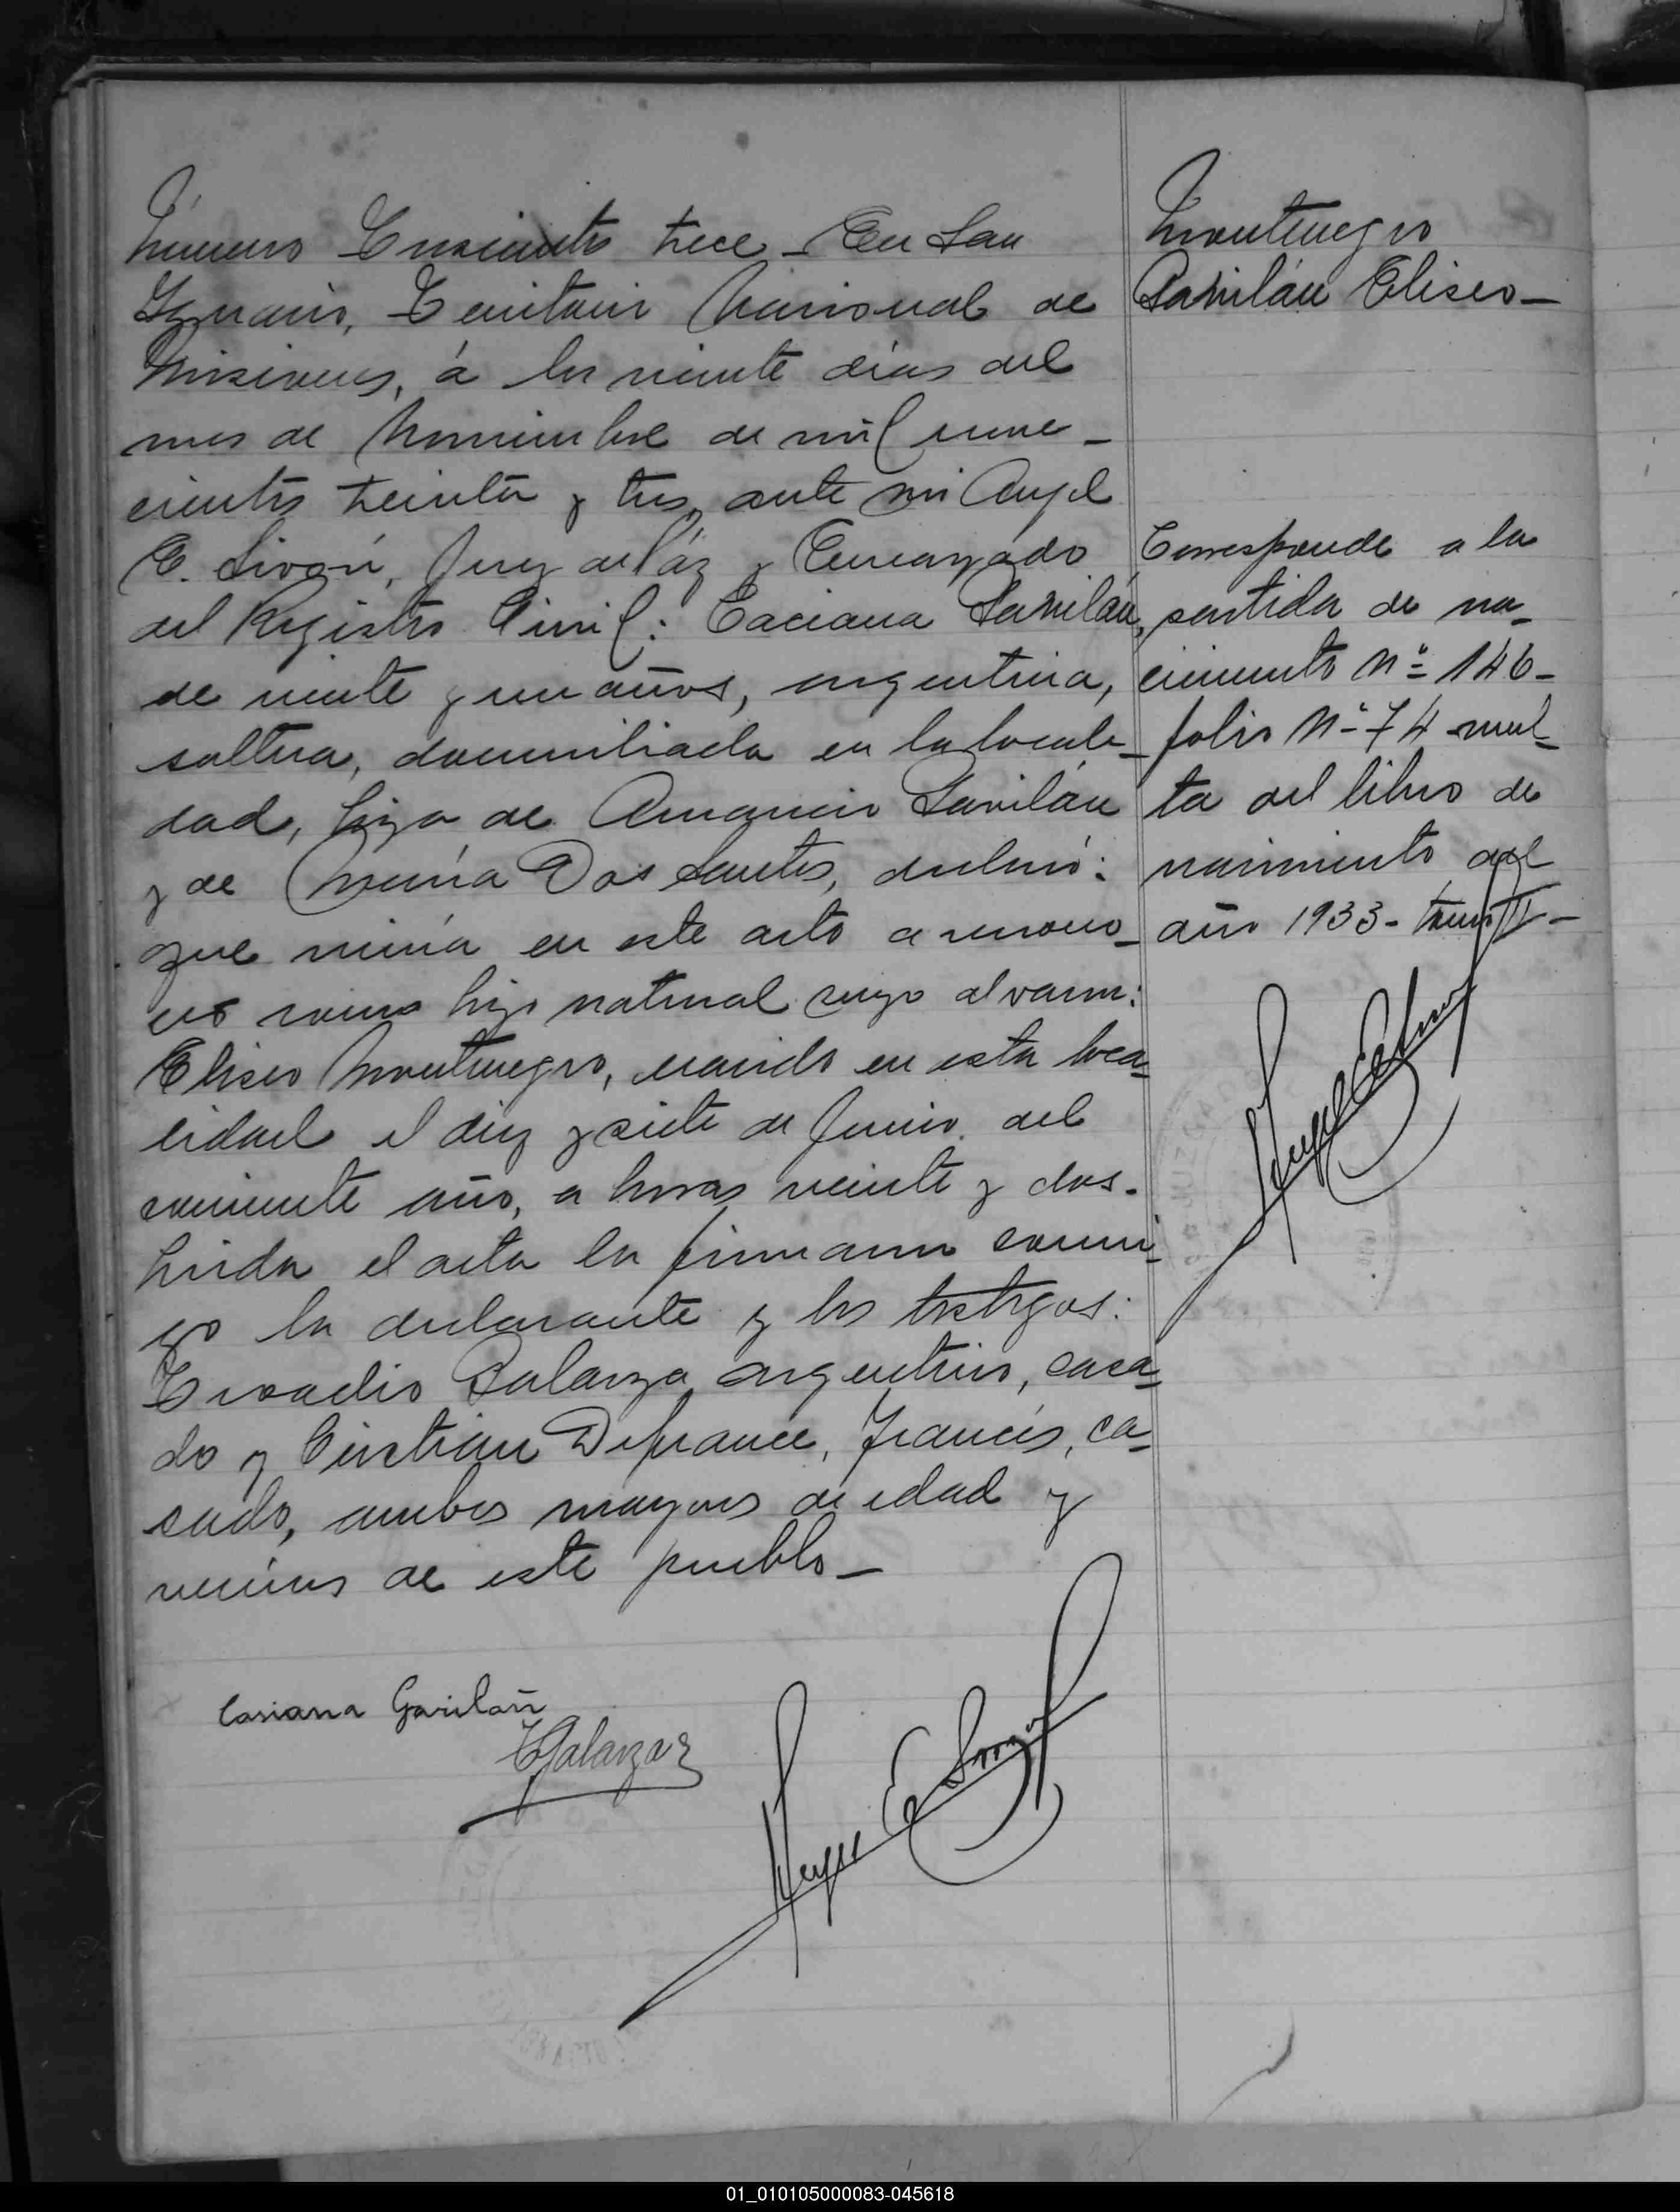 Número trescientos trece - En San
Ygnacio, Territorio Nacional de
Misiones, á los veinte días del
mes de Noviembre de mil nove-
cientos treinta y tres, ante mi Angel
E. Juez de Páz y Encargado
del Registro Civil: Caciana Gavilán,
de veinte y un años, argentina,
soltera, domiciliada en la locali-
dad, hija de Amancio Gavilán
y de María Dos Santos, declaró:
que venía en este acto a recono-
cer como hijo natural suyo al varon:
Eliseo Montenegro, nacido en esta loca-
lidad el diez y siete de Junio del
corriente año, a horas veinte y dos.
Leida el acta la firmaron conmi-
go la declarante y los testigos:
Galarza argentino, casa-
do y Cristian Defrance, francés, ca-
sado, ambos mayores de edad y
vecinos de este pueblo -
Casiana Gavilán
Galarza
Angel E
Montenegro
Gavilán Eliseo -
Corresponde a la
partida de na-
cimiento Nº 146 -
folio Nº 74 vuel-
ta del libro de
nacimiento del
año 1933 - tomo II -
Angel E
01_010105000083-045618